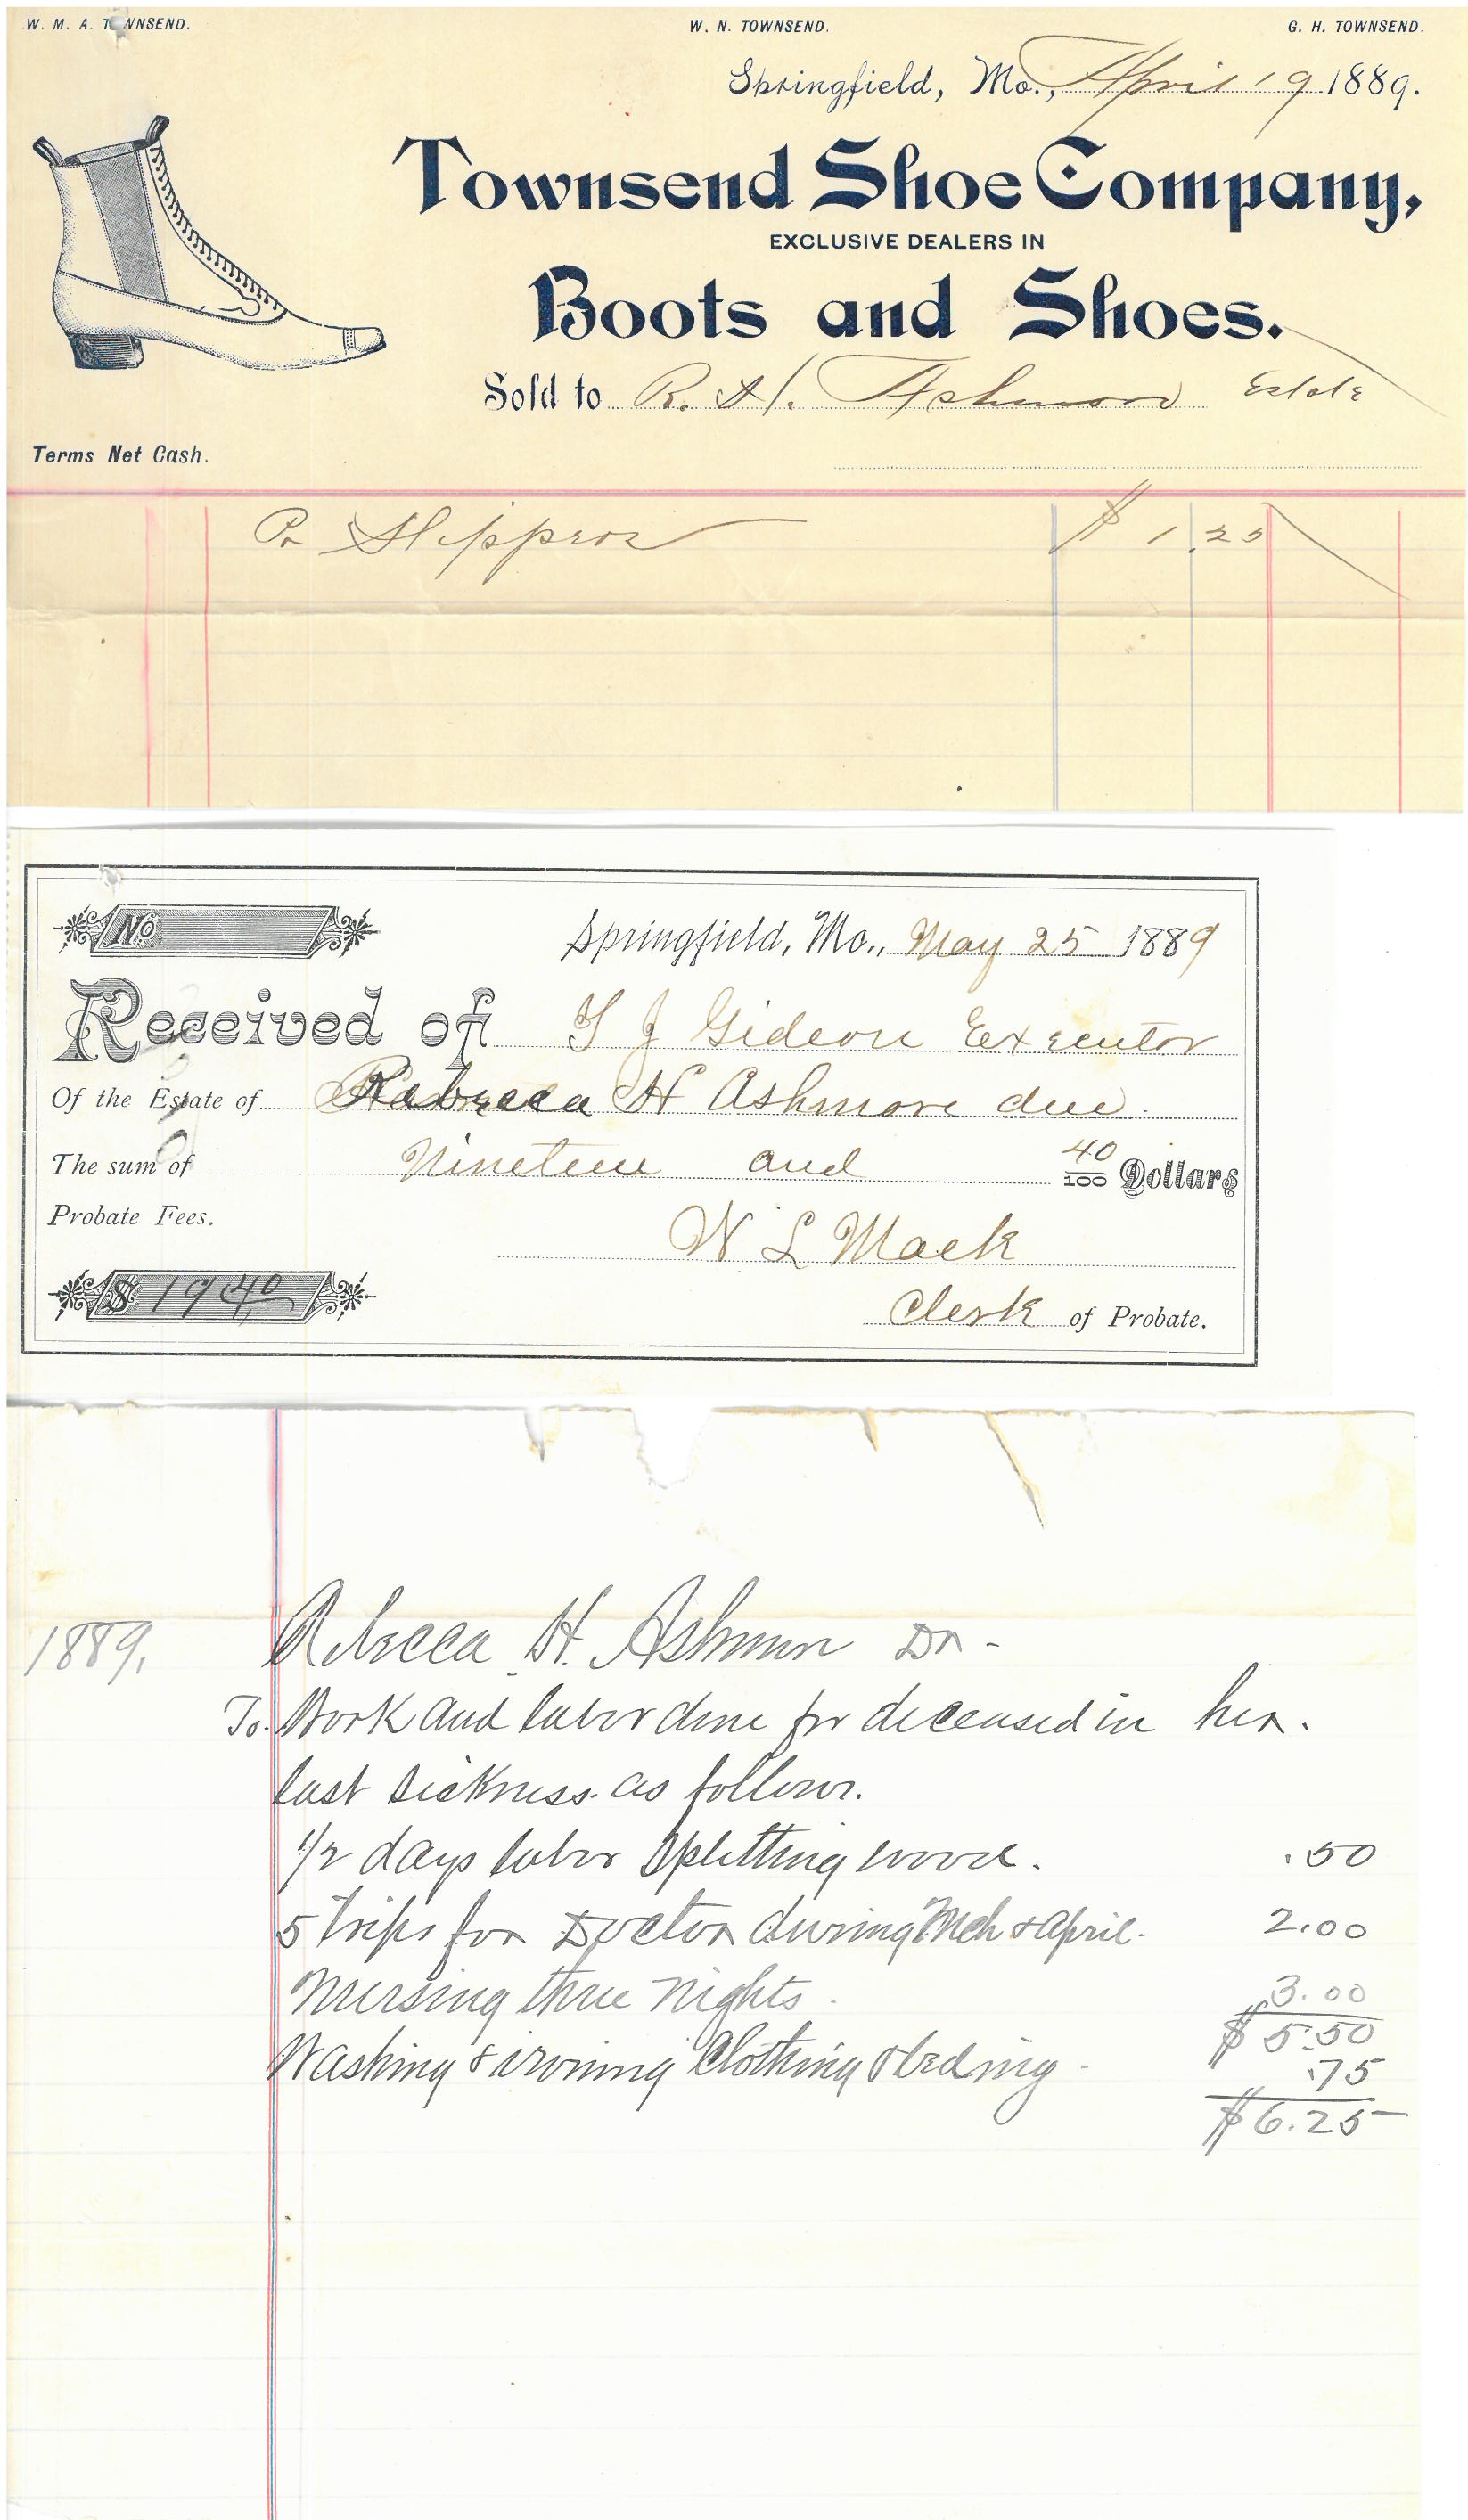 W. M. A. TOWNSEND. W. N. TOWNSEND. G. H. TOWNSEND.
Springfield, Mo., April 19 1889.
Townsend Shoe Company,
EXCLUSIVE DEALERS IN
Boots and Shoes.
Sold to R. H. Ashmore Estate
Terms Net Cash.
Pr Slippers $ 1.25
No
Springfield, Mo., May 25 1889
Received of T J Gideon Executor
Of the Estate of Rebecca H Ashmore due
The sum of Nineteen and 40/100 Dollars
Probate Fees.
W L Mack
$ 19 40
Clerk of Probate.
1889. Rebecca H. Ashmore Dr -
To Work and labor done for deceased in her.
last sickness as follows.
1/2 days labor splitting wood. .50
5 trips for Doctor during Mch & April. 2.00
Nursing three nights. 3.00
$ 5.50
Washing & ironing Clothing & beding - .75
$ 6.25